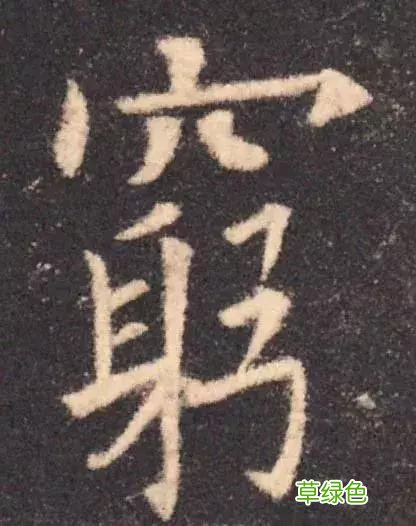 窮
草绿色